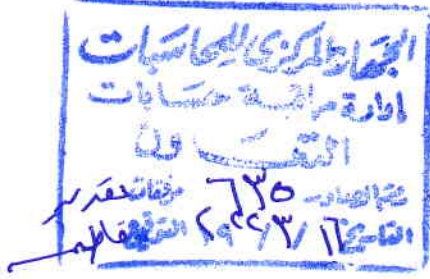 الجهاز المركزي للمحاسبات
إدارة مراقبة حسابات
التعاون
رقم الصادر ٦٣٥ مرفقات تقرير
التاريخ ١٦ / ٣ / ٢٠٢٢ التوقيع فاطمه